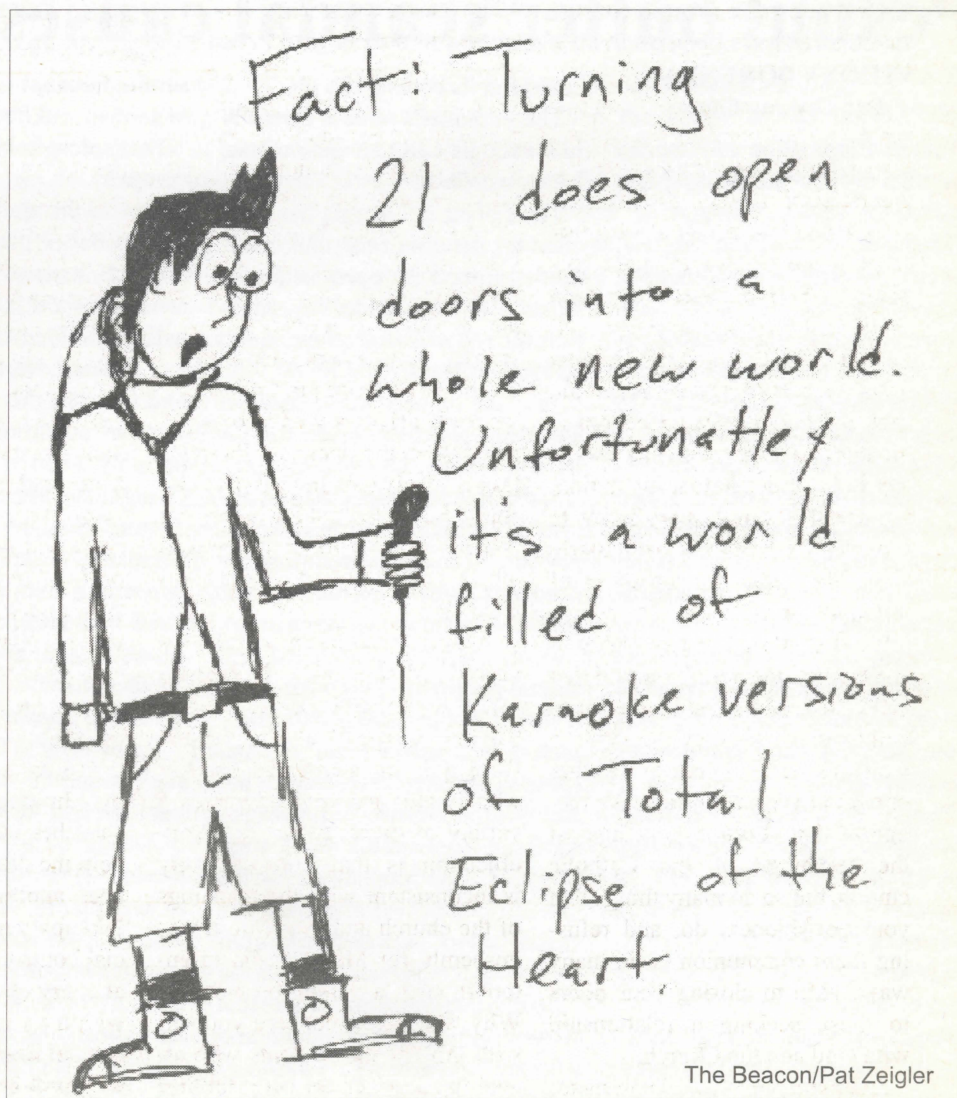 Fact: Turning
21 does open
doors into a
whole new world.
Unfortunatley
it's a world
filled of
Karaoke versions
of Total
Eclipse of the
Heart.
The Beacon/Pat Zeigler